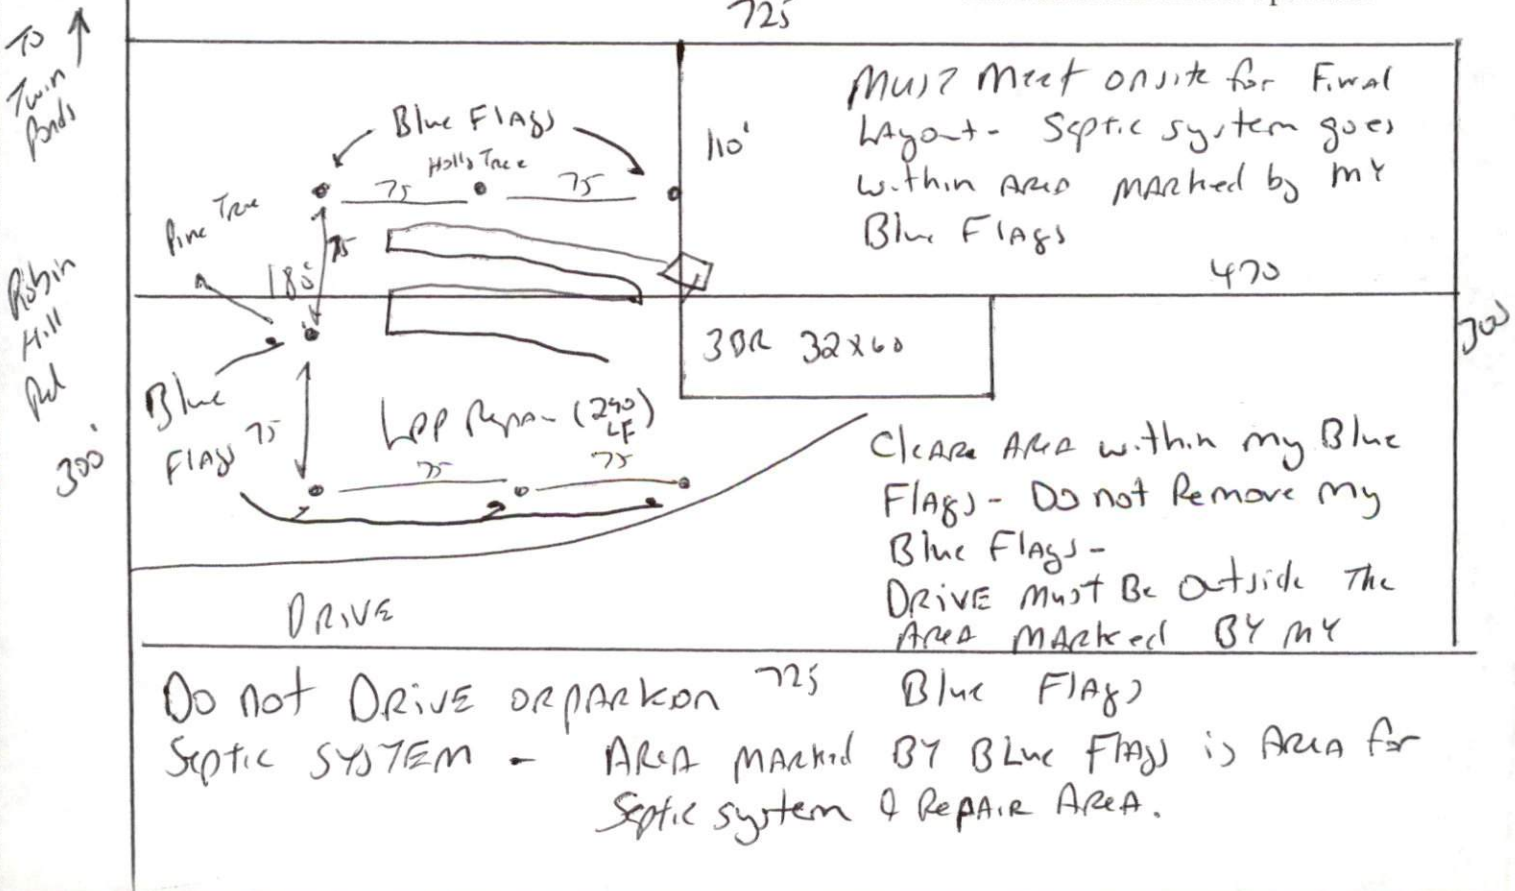 725
To
Twin
Ponds
Blue Flags
Holly Tree
75
75
110'
Must Meet onsite for Final
Layout- Septic system goes
within Area Marked by MY
Blue Flags
Pine Tree
75
180'
470
Robin
Hill
Rd
300'
3BR 32x60
300
Blue
Flags
75
LPP Repair (240
LF)
75
75
Cleare Area within my Blue
Flags - Do not Remove My
Blue Flags -
DRIVE Must Be Outside The
Area Marked BY MY
Blue Flags
DRIVE
725
Do not DRIVE or park on
Septic SYSTEM - Area Marked BY Blue Flags is Area for
Septic system & Repair Area.